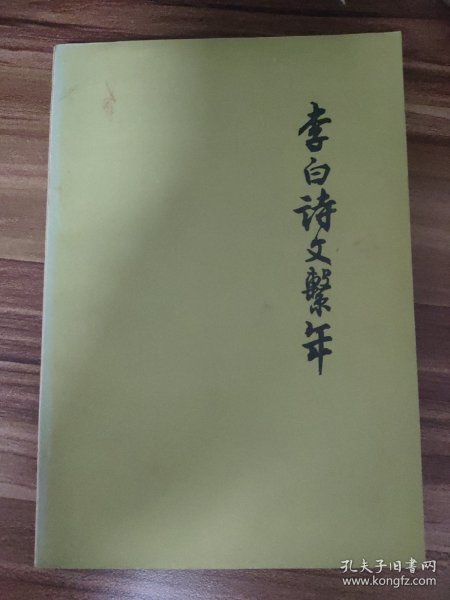 李白詩文繫年
孔夫子旧书网
www.kongfz.com